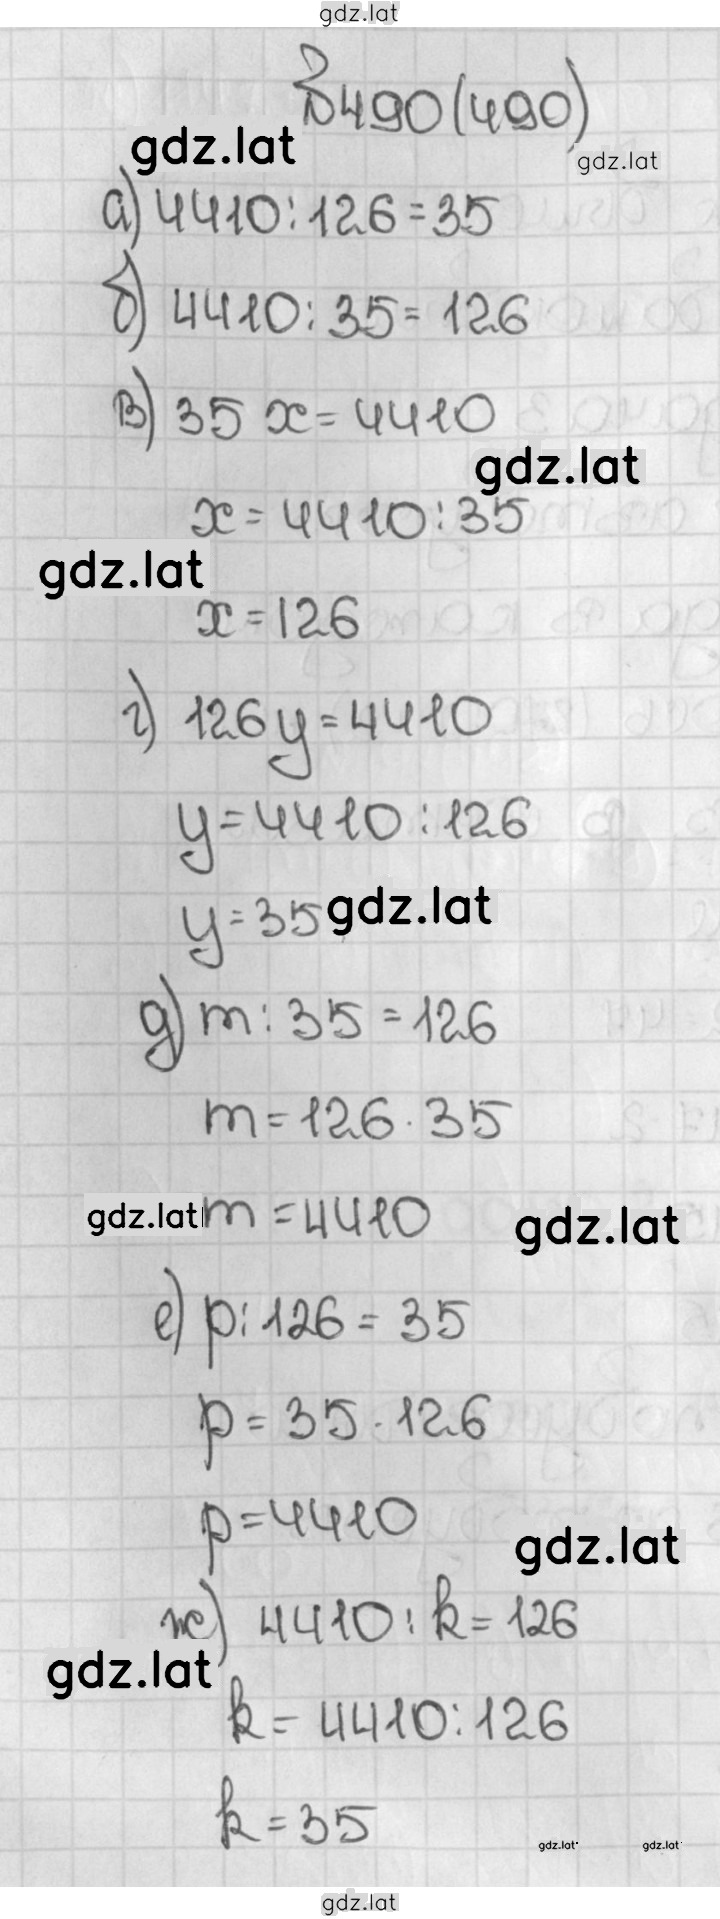 gdz.lat
№490(490)
gdz.lat
gdz.lat
а) 4410:126=35
б) 4410:35=126
в) 35 x=4410
gdz.lat
x=4410:35
gdz.lat
x=126
г) 126y=4410
y=4410:126
y=35
gdz.lat
д) m:35=126
m=126·35
gdz.lat
m=4410
gdz.lat
е) p:126=35
p=35·126
p=4410
gdz.lat
ж) 4410:k=126
gdz.lat
k=4410:126
k=35
gdz.lat
gdz.lat
gdz.lat